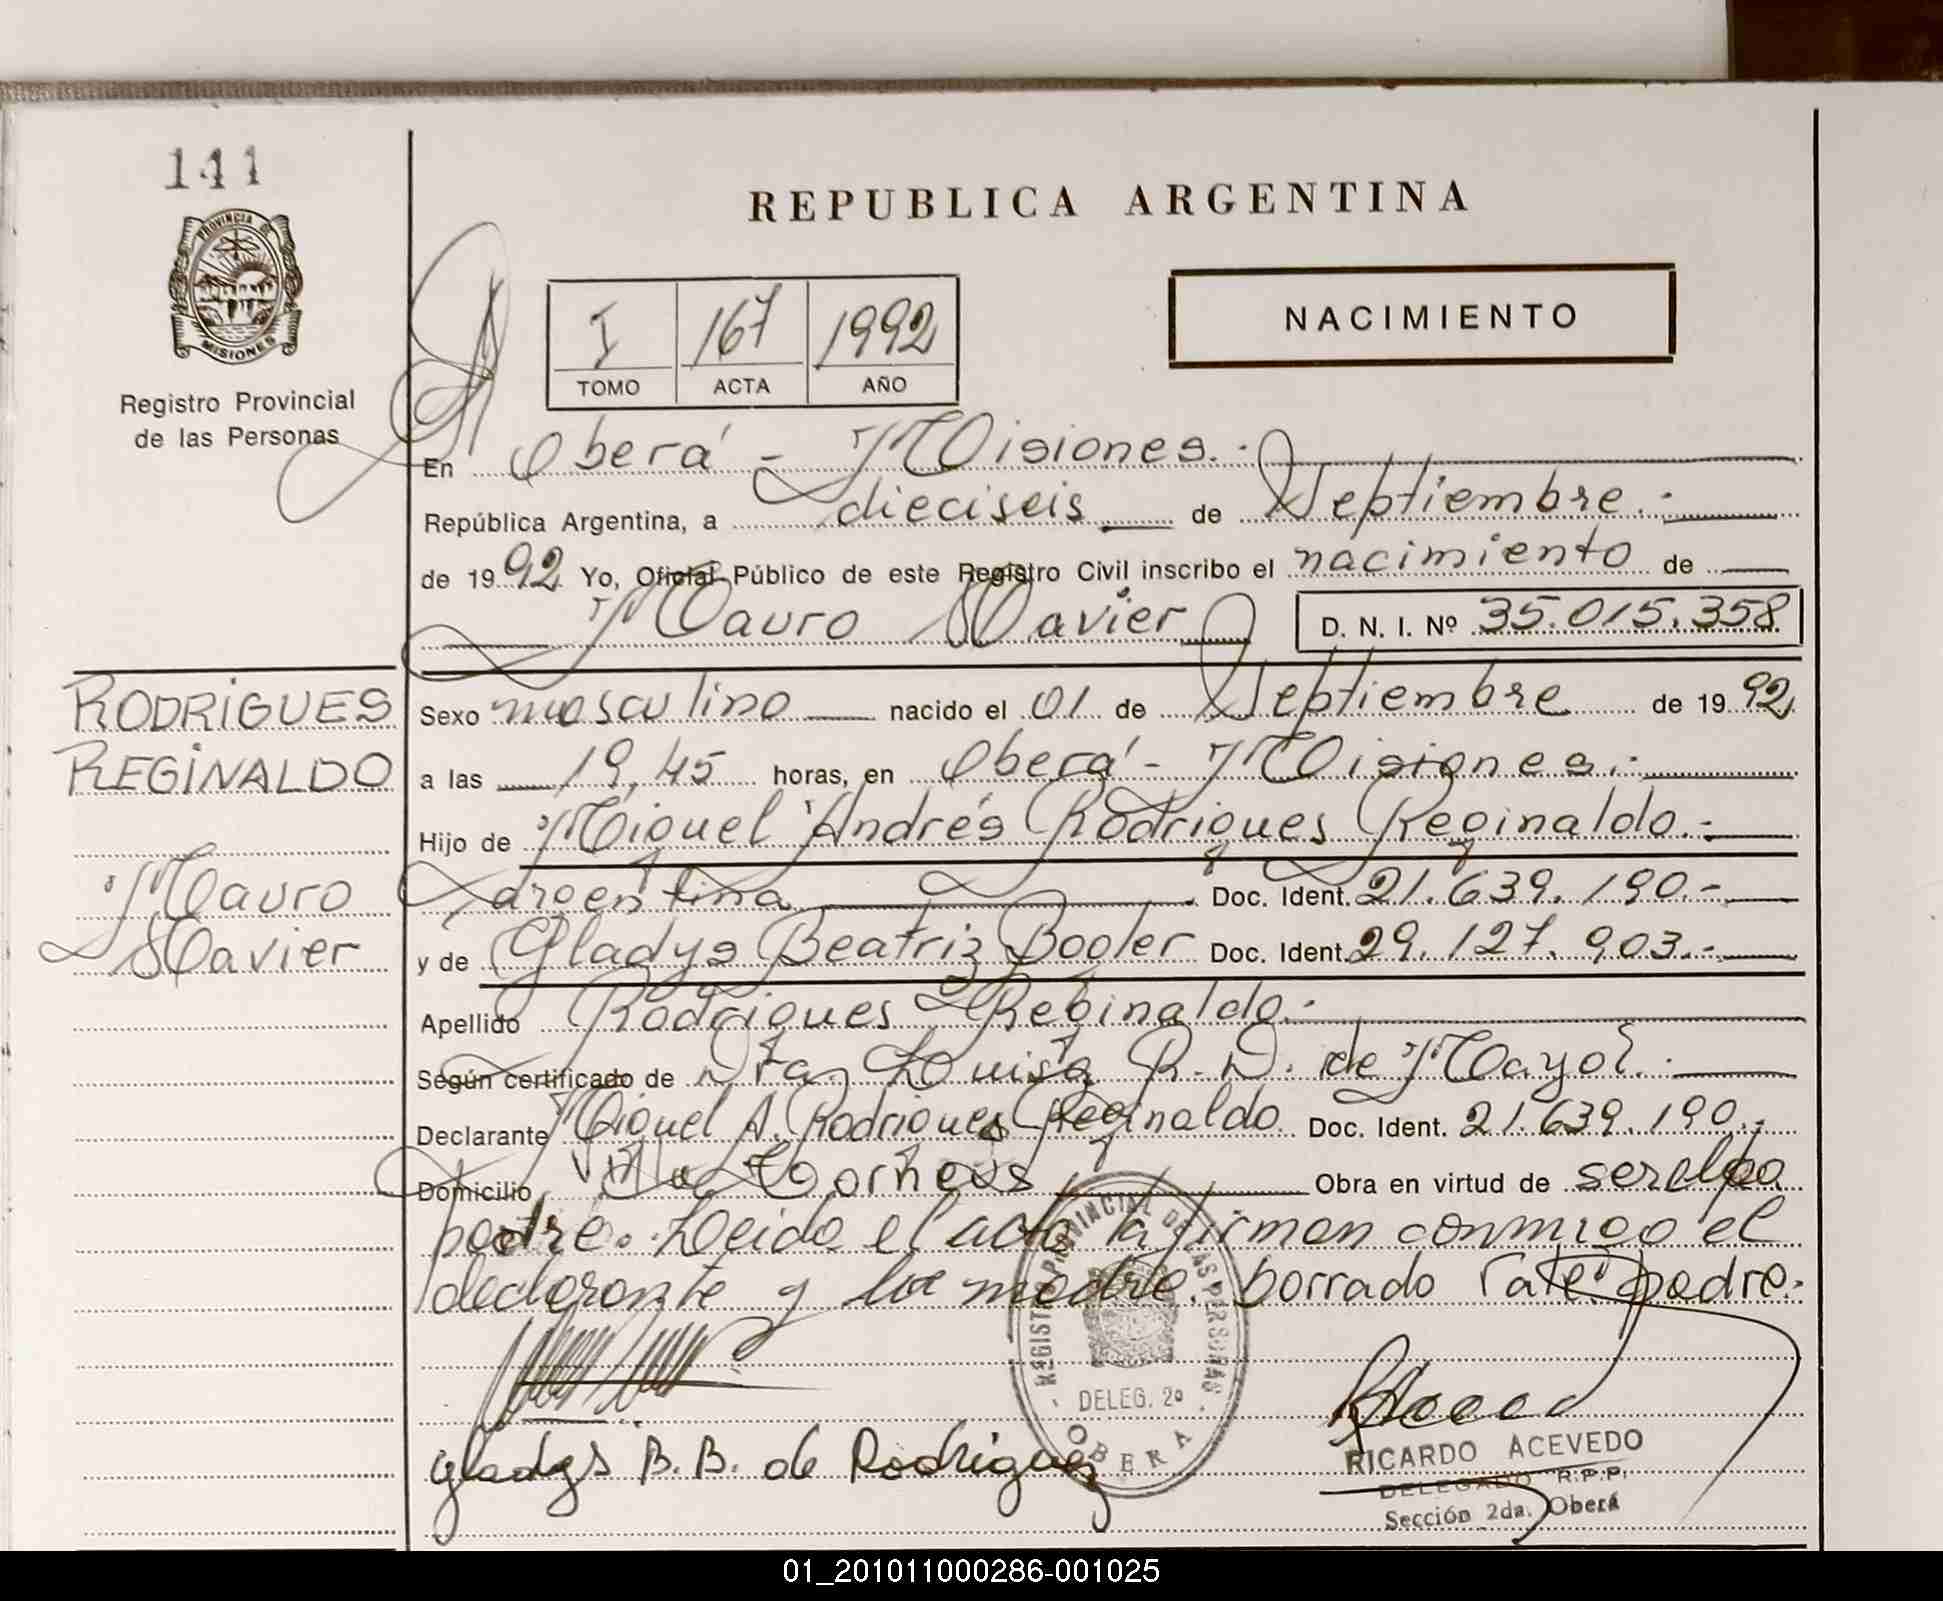 141
REPUBLICA ARGENTINA
PROVINCIA DE
MISIONES
Registro Provincial
de las Personas
I 167 1992
TOMO ACTA AÑO
NACIMIENTO
En Oberá - Misiones.-
República Argentina, a dieciseis de Septiembre.-
de 1992 Yo, Oficial Público de este Registro Civil inscribo el nacimiento de
Mauro Xavier D. N. I. Nº 35.015.358
RODRIGUES
REGINALDO
Mauro
Xavier
Sexo masculino nacido el 01 de Septiembre de 1992
a las 19,45 horas, en Oberá - Misiones.-
Hijo de Miguel Andrés Rodrigues Reginaldo.-
Argentina Doc. Ident. 21.639.190.-
y de Gladys Beatriz Bogler Doc. Ident. 29.127.903.-
Apellido Rodrigues Reginaldo.-
Según certificado de Dra. Luisa R. D. de Mayol.-
Declarante Miguel A. Rodrigues Reginaldo Doc. Ident. 21.639.190.-
Domicilio Villa Obra en virtud de ser el
padre. Leida el acta la firman conmigo el
declarante y la madre. borrado vale: padre.-
REGISTRO PROVINCIAL DE LAS PERSONAS
DELEG. 2º
OBERA
Gladys B. B. de Rodriguez
RICARDO ACEVEDO
DELEGADO R.P.P.
Sección 2da. Oberá
01_201011000286-001025